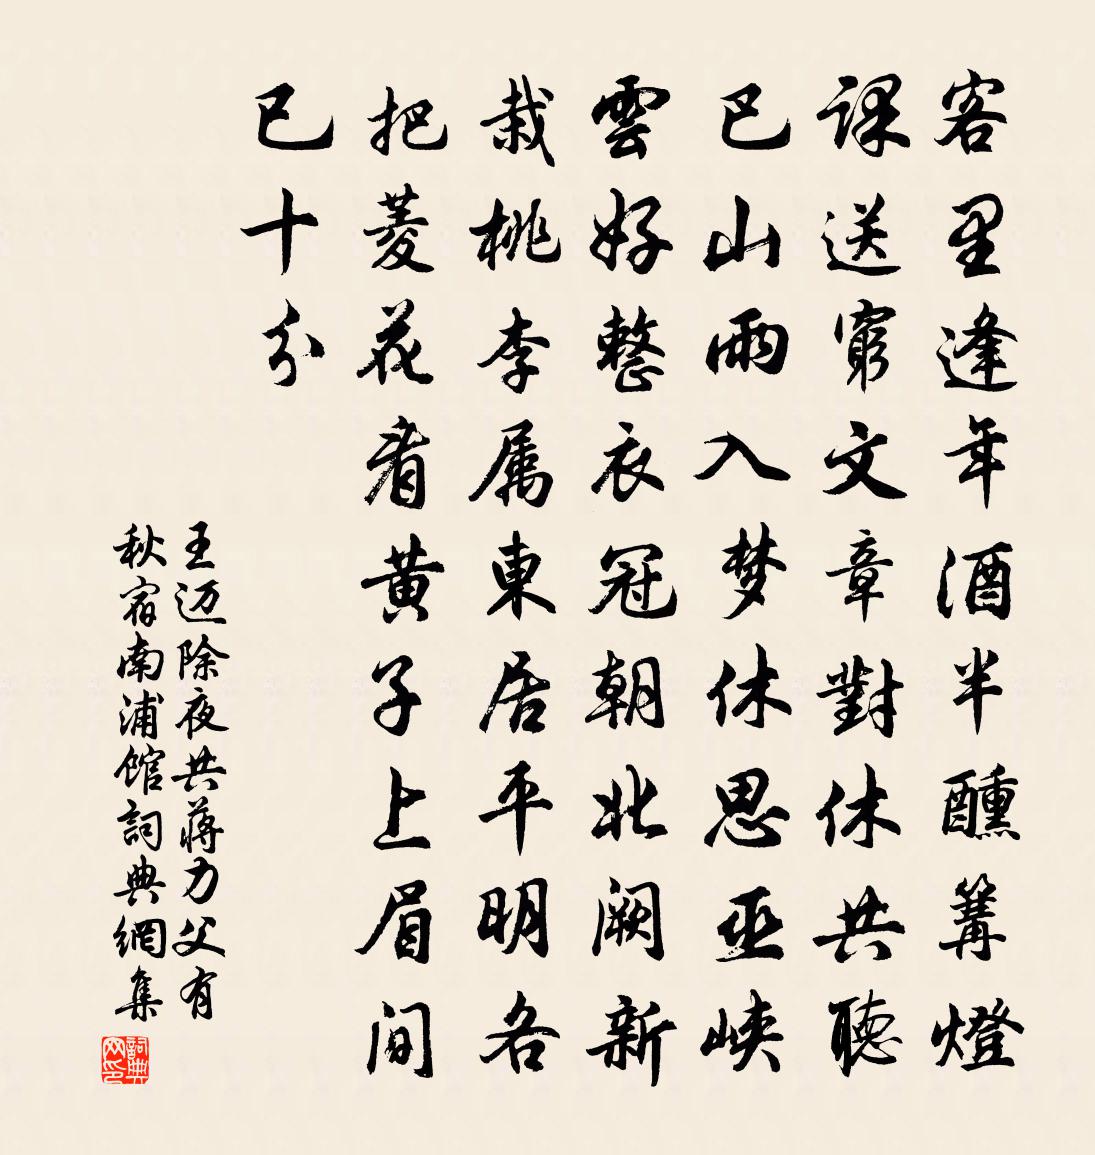 客里逢年酒半醺篝燈
課送窮文章對休共聽
巴山雨入梦休思巫峽
雲好整衣冠朝北闕新
栽桃李属東居平明各
把菱花看黄子上眉间
已十分
王迈除夜共蒋力父有
秋宿南浦馆詞典網集
詞典网印